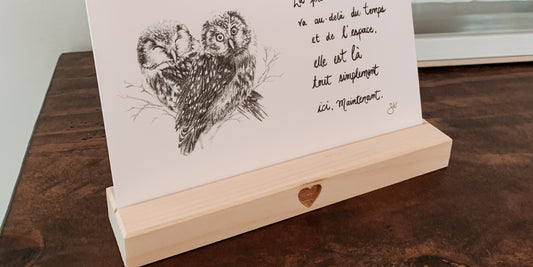 La
va au-delà du temps
et de l'espace,
elle est là
tout simplement
ici, Maintenant.